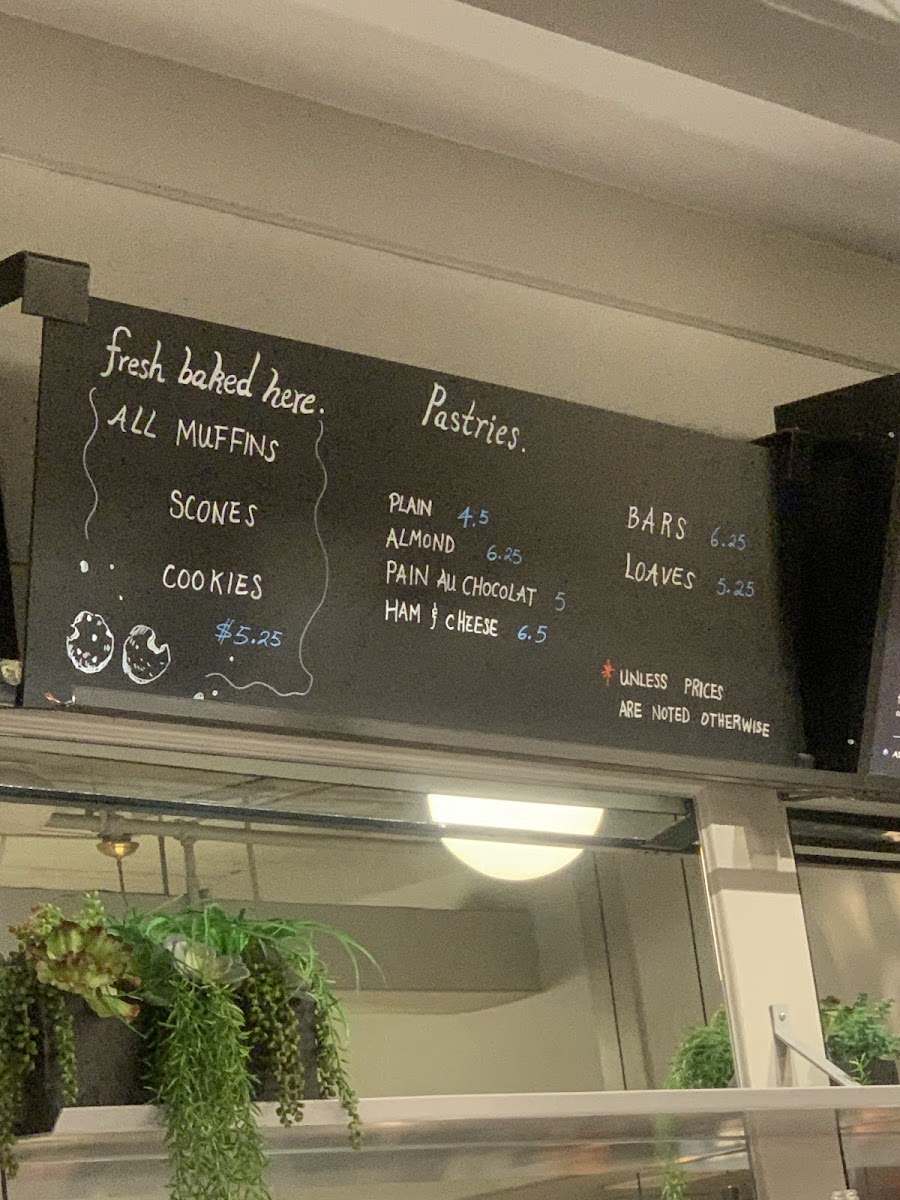 fresh baked here.
ALL MUFFINS
SCONES
COOKIES
$5.25
Pastries.
PLAIN 4.5
ALMOND 6.25
PAIN AU CHOCOLAT 5
HAM & CHEESE 6.5
BARS 6.25
LOAVES 5.25
* UNLESS PRICES
ARE NOTED OTHERWISE